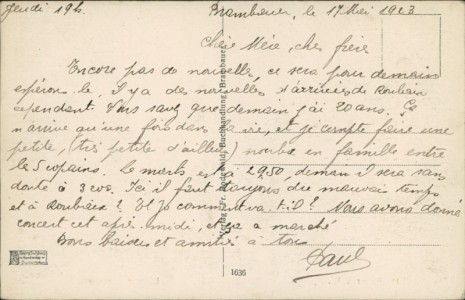 Jeudi 19h. Brambauer, le 17 Mai 1923
Chère Mère, cher frère
Encore pas de nouvelles, ce sera pour demain
espérons le. Il y a des nouvelles d'arrivées de Roubaix
cependant. Vous savez que demain j'ai 20 ans. Ça
n'arrive qu'une fois dans la vie, et je compte faire une
petite, très petite d'ailleurs) en famille entre
les 5 copains. Le est à 2950, demain il sera sans
doute à 3 Ici il fait toujours du mauvais temps
et à Roubaix? Et Jo comment va-t-il? Nous avons donné
concert cet après-midi, et ça a marché
Bons baisers et amitiés à tous
Paul
Verlag Fr. Buchhandlung,
1636